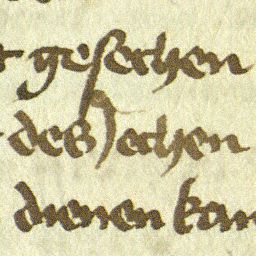 geſechen
des ſechen
dienen kan